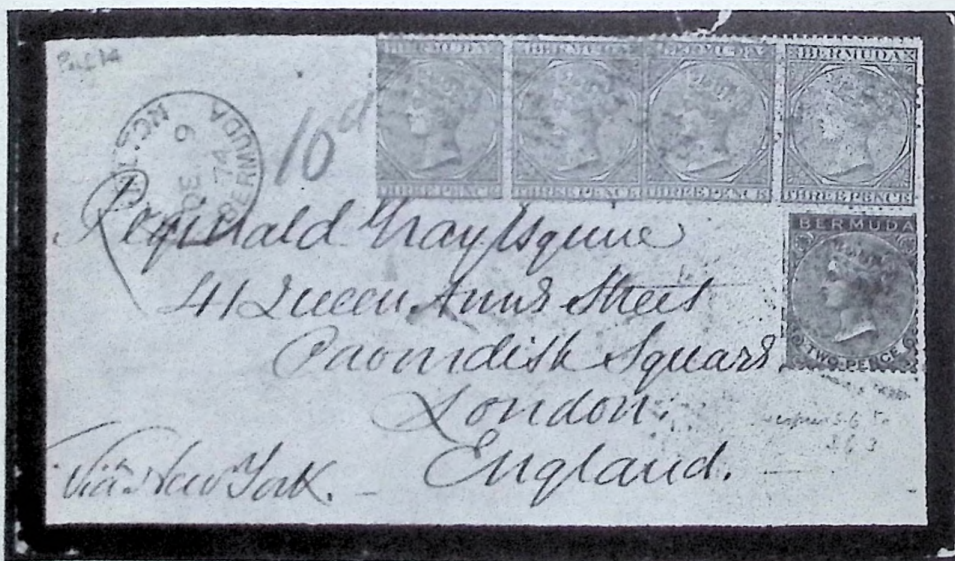 BERMUDA
BERMUDA
BERMUDA
BERMUDA
THREE PENCE
THREE PENCE
THREE PENCE
THREE PENCE
BERMUDA
TWO PENCE
BERMUDA
6
74
10d
Reginald Gray Esquire
41 Queen Anns Street
Cavendish Square
London.
England.
Via New York.